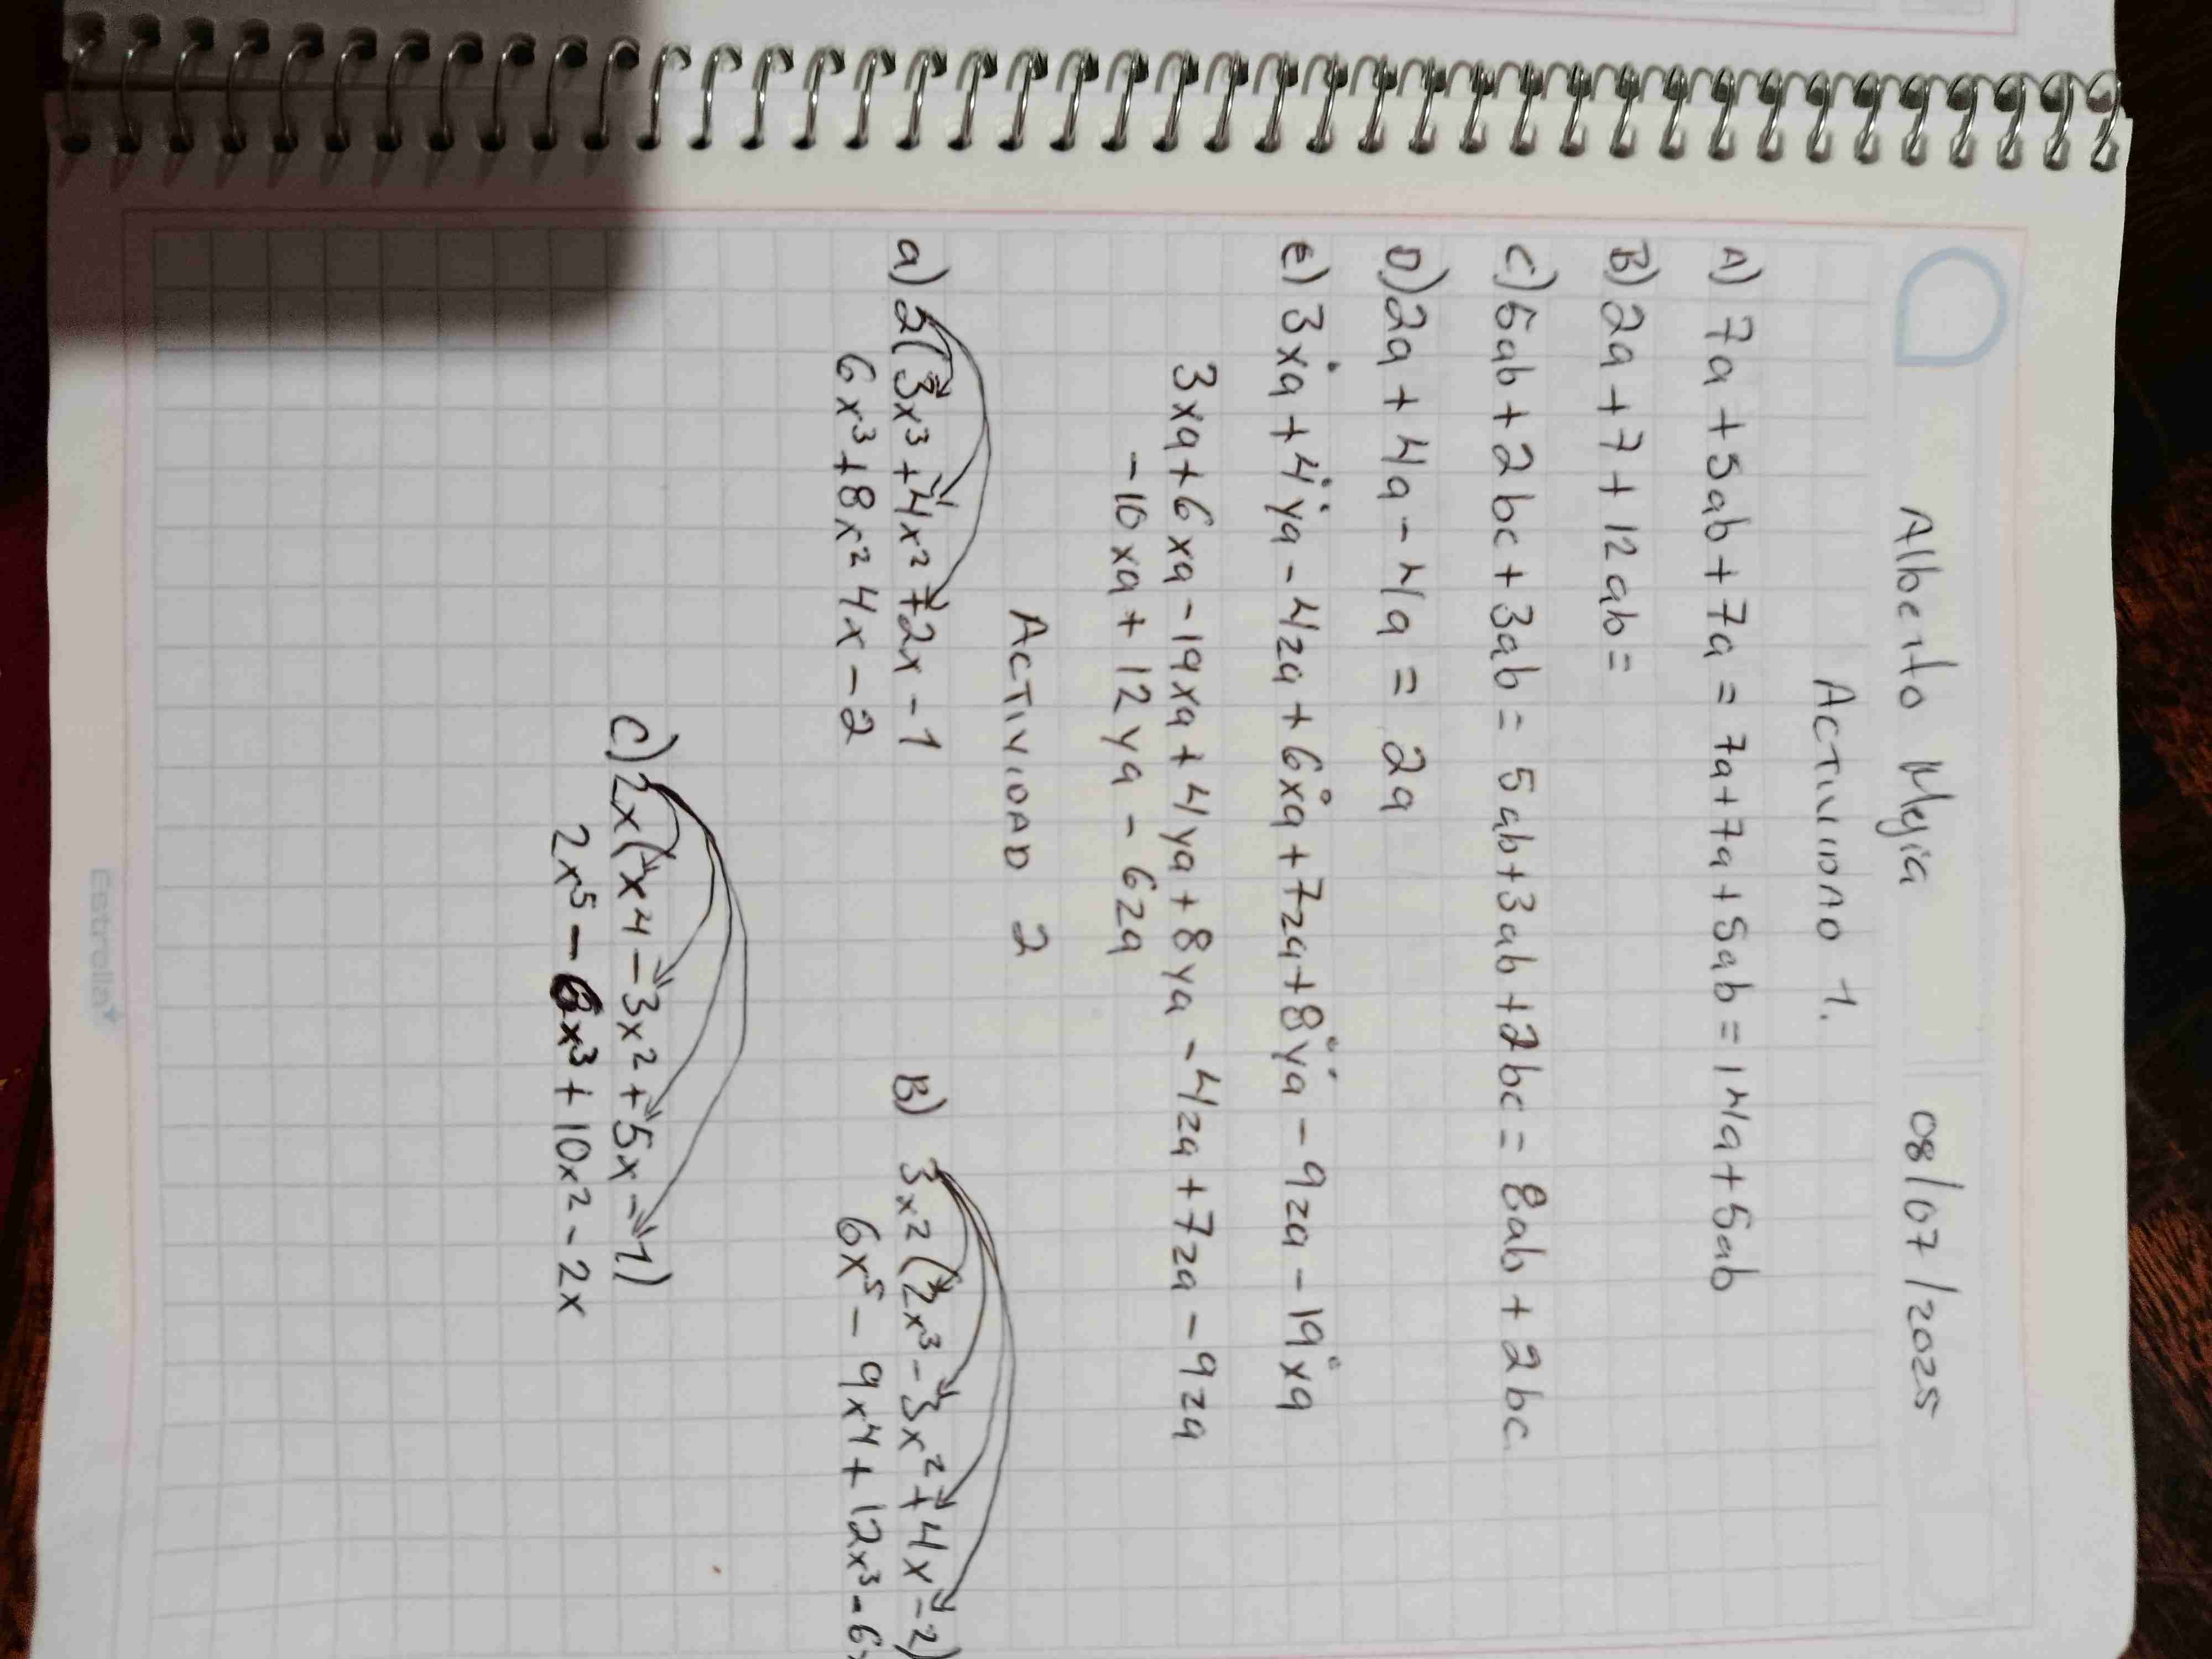 Alberto Mejia 08/07/2025
Actividad 1.
A) 7a + 5ab + 7a = 7a+7a+5ab = 14a+5ab
B) 2a + 7 + 12ab =
C) 5ab + 2bc + 3ab = 5ab+3ab+2bc = 8ab + 2bc
D) 2a + 4a - 4a = 2a
E) 3xa + 4ya - 4za + 6xa + 7za + 8ya - 9za - 19xa
3xa + 6xa - 19xa + 4ya + 8ya - 4za + 7za - 9za
- 10xa + 12ya - 6za
Actividad 2
a) 2(3x³ + 4x² + 2x - 1
6x³ + 8x² 4x - 2
B) 3x²(2x³ - 3x² + 4x - 2)
6x⁵ - 9x⁴ + 12x³ - 6x
C) 2x(x4 - 3x² + 5x - 1)
2x⁵ - 6x³ + 10x² - 2x
Estrella